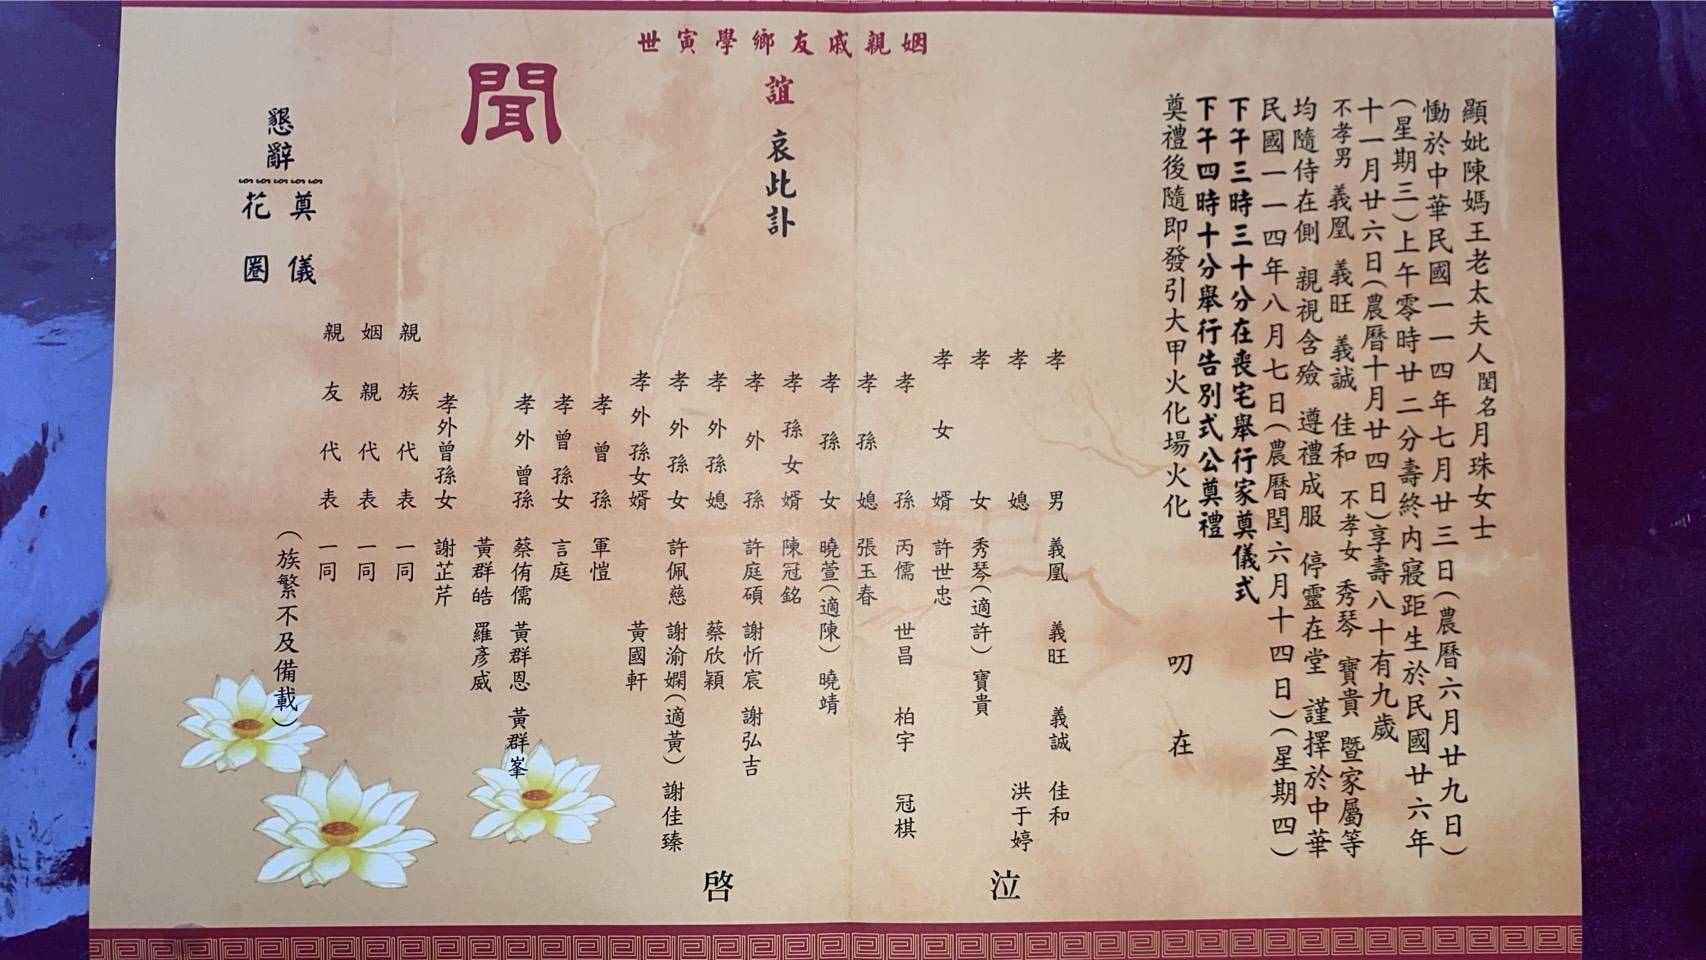 顯妣陳媽王老太夫人閨名月珠女士
慟於中華民國一一四年七月廿三日(農曆六月廿九日)
(星期三)上午零時廿二分壽終內寢距生於民國廿六年
十一月廿六日(農曆十月廿四日)享壽八十有九歲
不孝男 義凰 義旺 義誠 佳和 不孝女 秀琴 寶貴 暨家屬等
均隨侍在側 親視含殮 遵禮成服 停靈在堂 謹擇於中華
民國一一四年八月七日(農曆閏六月十四日)(星期四)
下午三時三十分在喪宅舉行家奠儀式
下午四時十分舉行告別式公奠禮
奠禮後隨即發引大甲火化場火化
叨在
姻親戚友鄉學寅世
誼
哀此訃
聞
孝男 義凰 義旺 義誠 佳和
孝媳 洪于婷
孝女 秀琴(適許) 寶貴
孝女婿 許世忠
孝孫 丙儒 世昌 柏宇 冠棋
孝孫媳 張玉春
孝孫女 曉萱(適陳) 曉靖
孝孫女婿 陳冠銘
孝外孫 許庭碩 謝忻宸 謝弘吉
孝外孫媳 蔡欣穎
孝外孫女 許佩慈 謝渝嫻(適黃) 謝佳臻
孝外孫女婿 黃國軒
孝曾孫 軍愷
孝曾孫女 言庭
孝外曾孫 蔡侑儒 黃群恩 黃群峯
黃群皓 羅彥威
孝外曾孫女 謝芷芹
親族代表 一同
姻親代表 一同
親友代表 一同
(族繁不及備載)
泣
啓
懇辭
奠儀
花圈